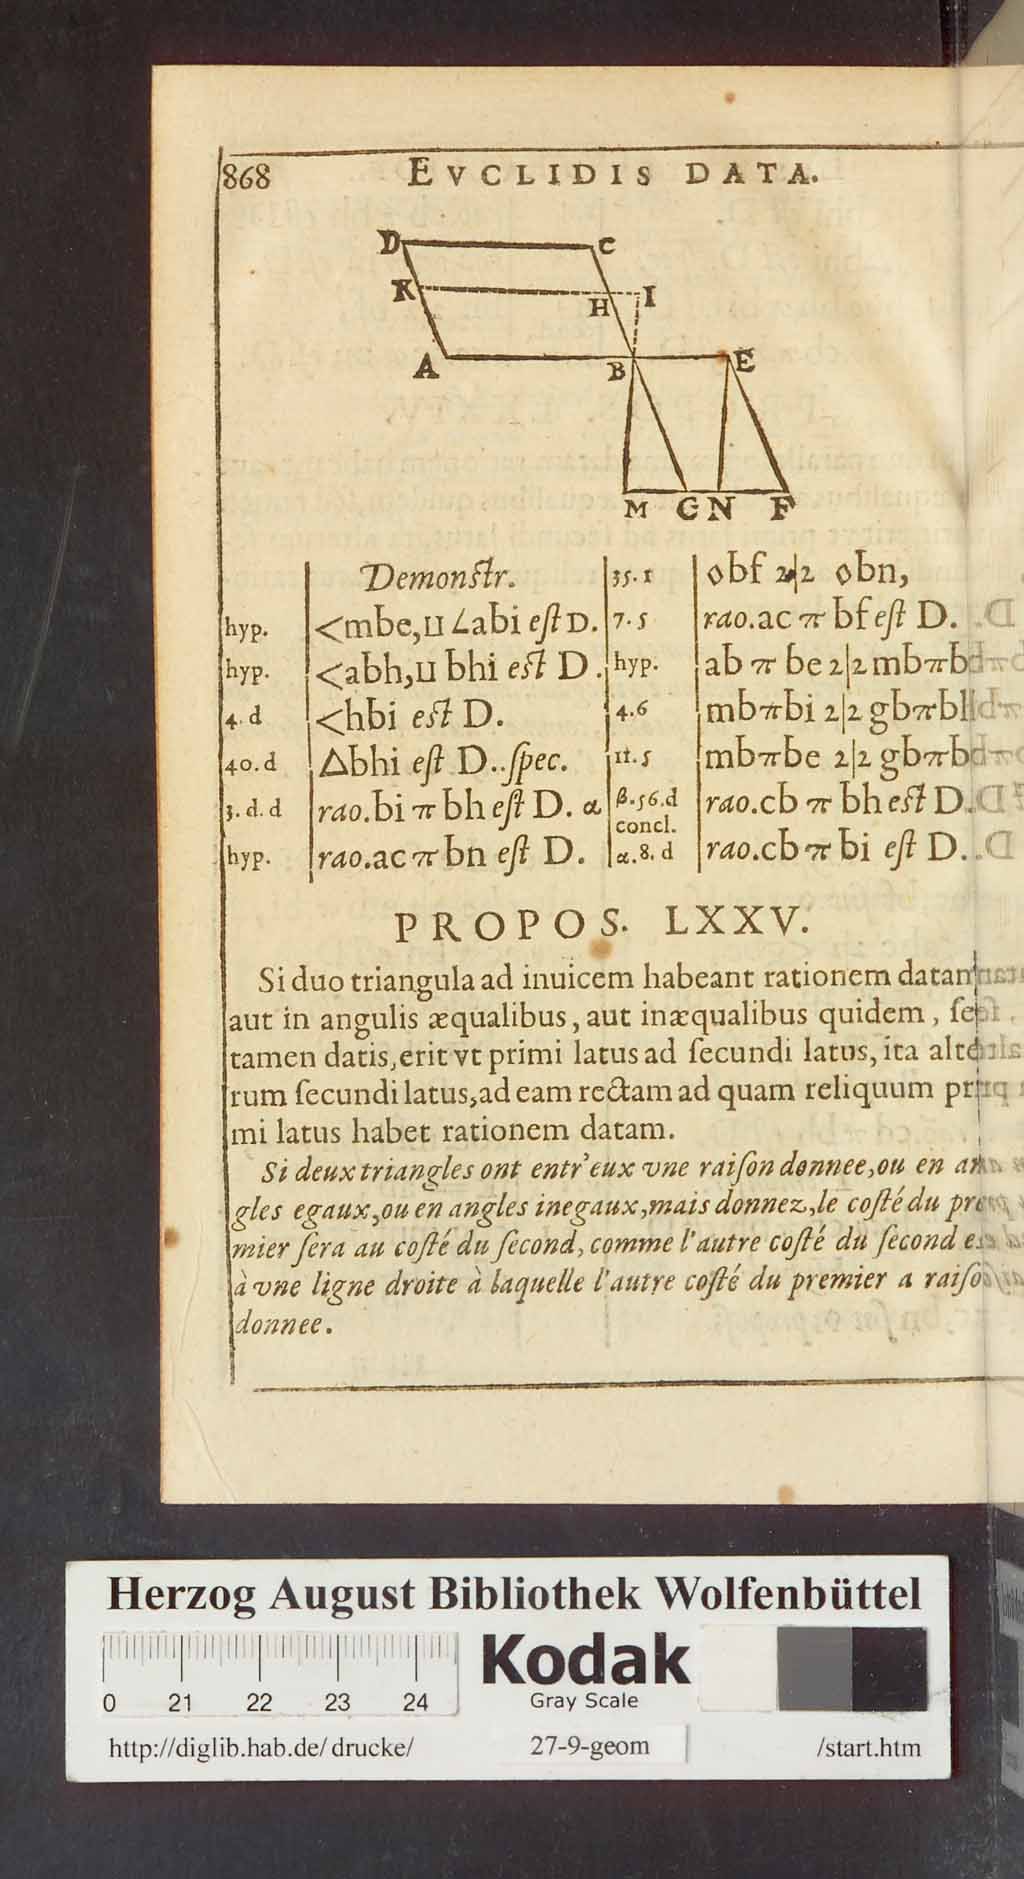 868 EVCLIDIS DATA.
D C
K H I
A B E
M G N F
Demonstr.
hyp. <mbe,⊔∠abi est D.
hyp. <abh,⊔ bhi est D.
4. d <hbi est D.
40. d △bhi est D..spec.
3. d. d rao.bi π bh est D. α
hyp. rao.ac π bn est D.
35. 1 ◊bf 2|2 ◊bn,
7. 5 rao.ac π bf est D.
hyp. ab π be 2|2 mb π
4. 6 mb π bi 2|2 gb π
11. 5 mb π be 2|2 gb π
β. 56. d rao.cb π bh est D.
concl.
α. 8. d rao.cb π bi est D.
PROPOS. LXXV.
Si duo triangula ad inuicem habeant rationem datam
aut in angulis æqualibus, aut inæqualibus quidem, sed
tamen datis, erit vt primi latus ad secundi latus, ita alte-
rum secundi latus, ad eam rectam ad quam reliquum pri-
mi latus habet rationem datam.
Si deux triangles ont entr'eux vne raison donnee, ou en an-
gles egaux, ou en angles inegaux, mais donnez, le costé du pre-
mier sera au costé du second, comme l'autre costé du second est
à vne ligne droite à laquelle l'autre costé du premier a raison
donnee.
Herzog August Bibliothek Wolfenbüttel
Kodak
Gray Scale
0 21 22 23 24
http://diglib.hab.de/drucke/ 27-9-geom /start.htm